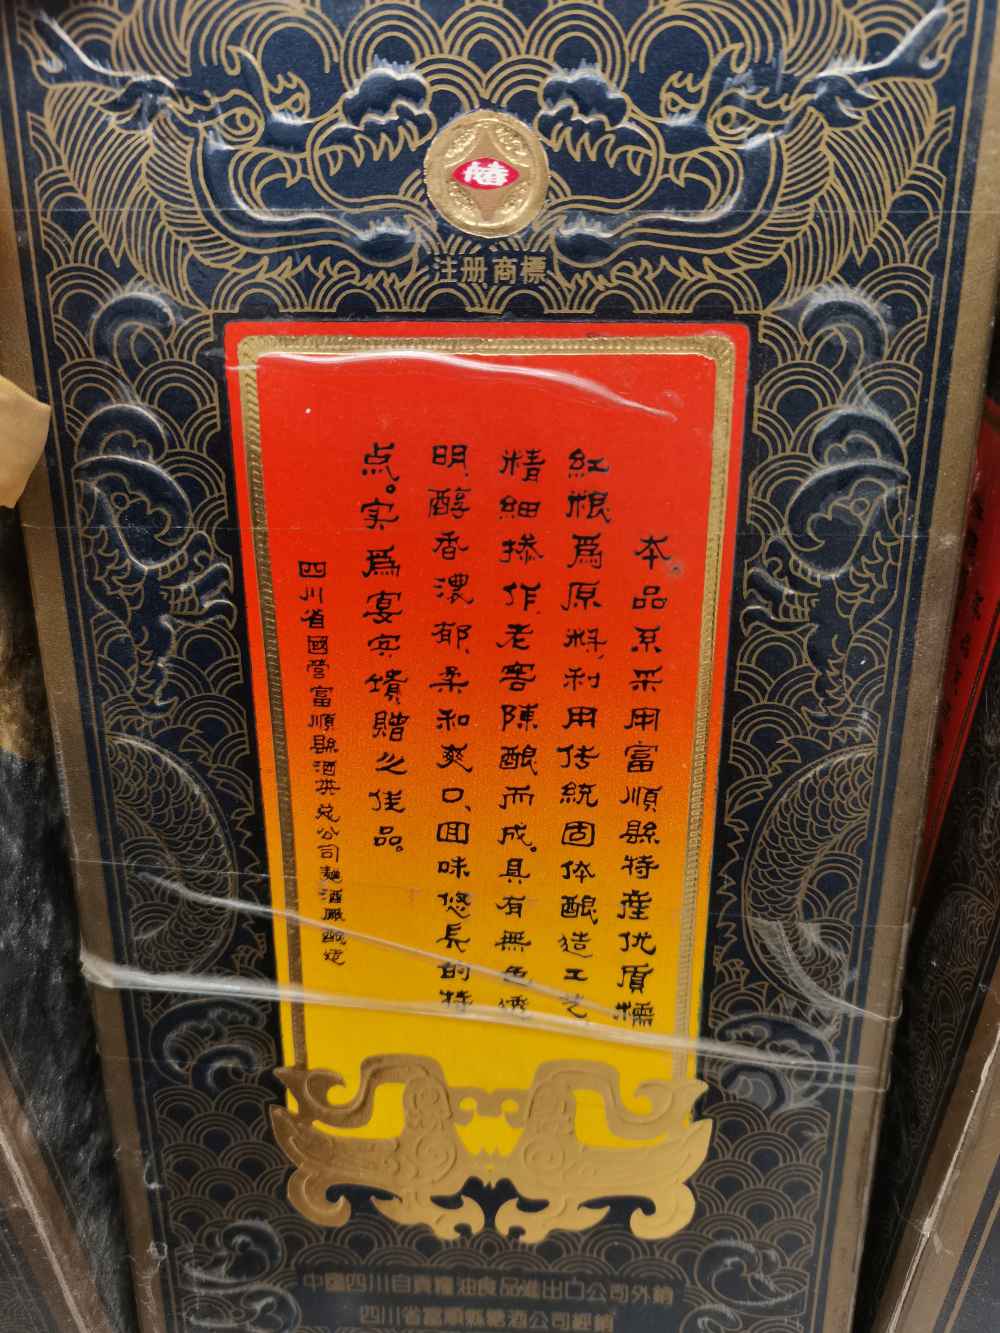 椿
注册商標
本品系采用富順縣特産优质糯
红粮爲原料,利用传統固体酿造工艺,
精细操作,老窖陳酿而成。具有無色透
明,醇香濃郁,柔和爽口,回味悠長的特
点。实爲宴宾馈贈之佳品。
四川省國营富順縣酒类总公司麯酒厰酿造
中國四川自貢糧油食品進出口公司外銷
四川省富順縣糖酒公司經銷